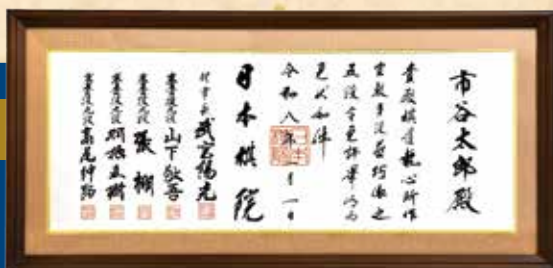 市谷太郎殿
貴殿棋道執心所作
宜敷手段益巧依之
五段令免許畢仍而
免状如件
令和八年一月一日
日本棋院
理事長 武宮陽光
審査役九段 山下敬吾
審査役九段 張栩
審査役九段 羽根直樹
審査役九段 高尾紳路